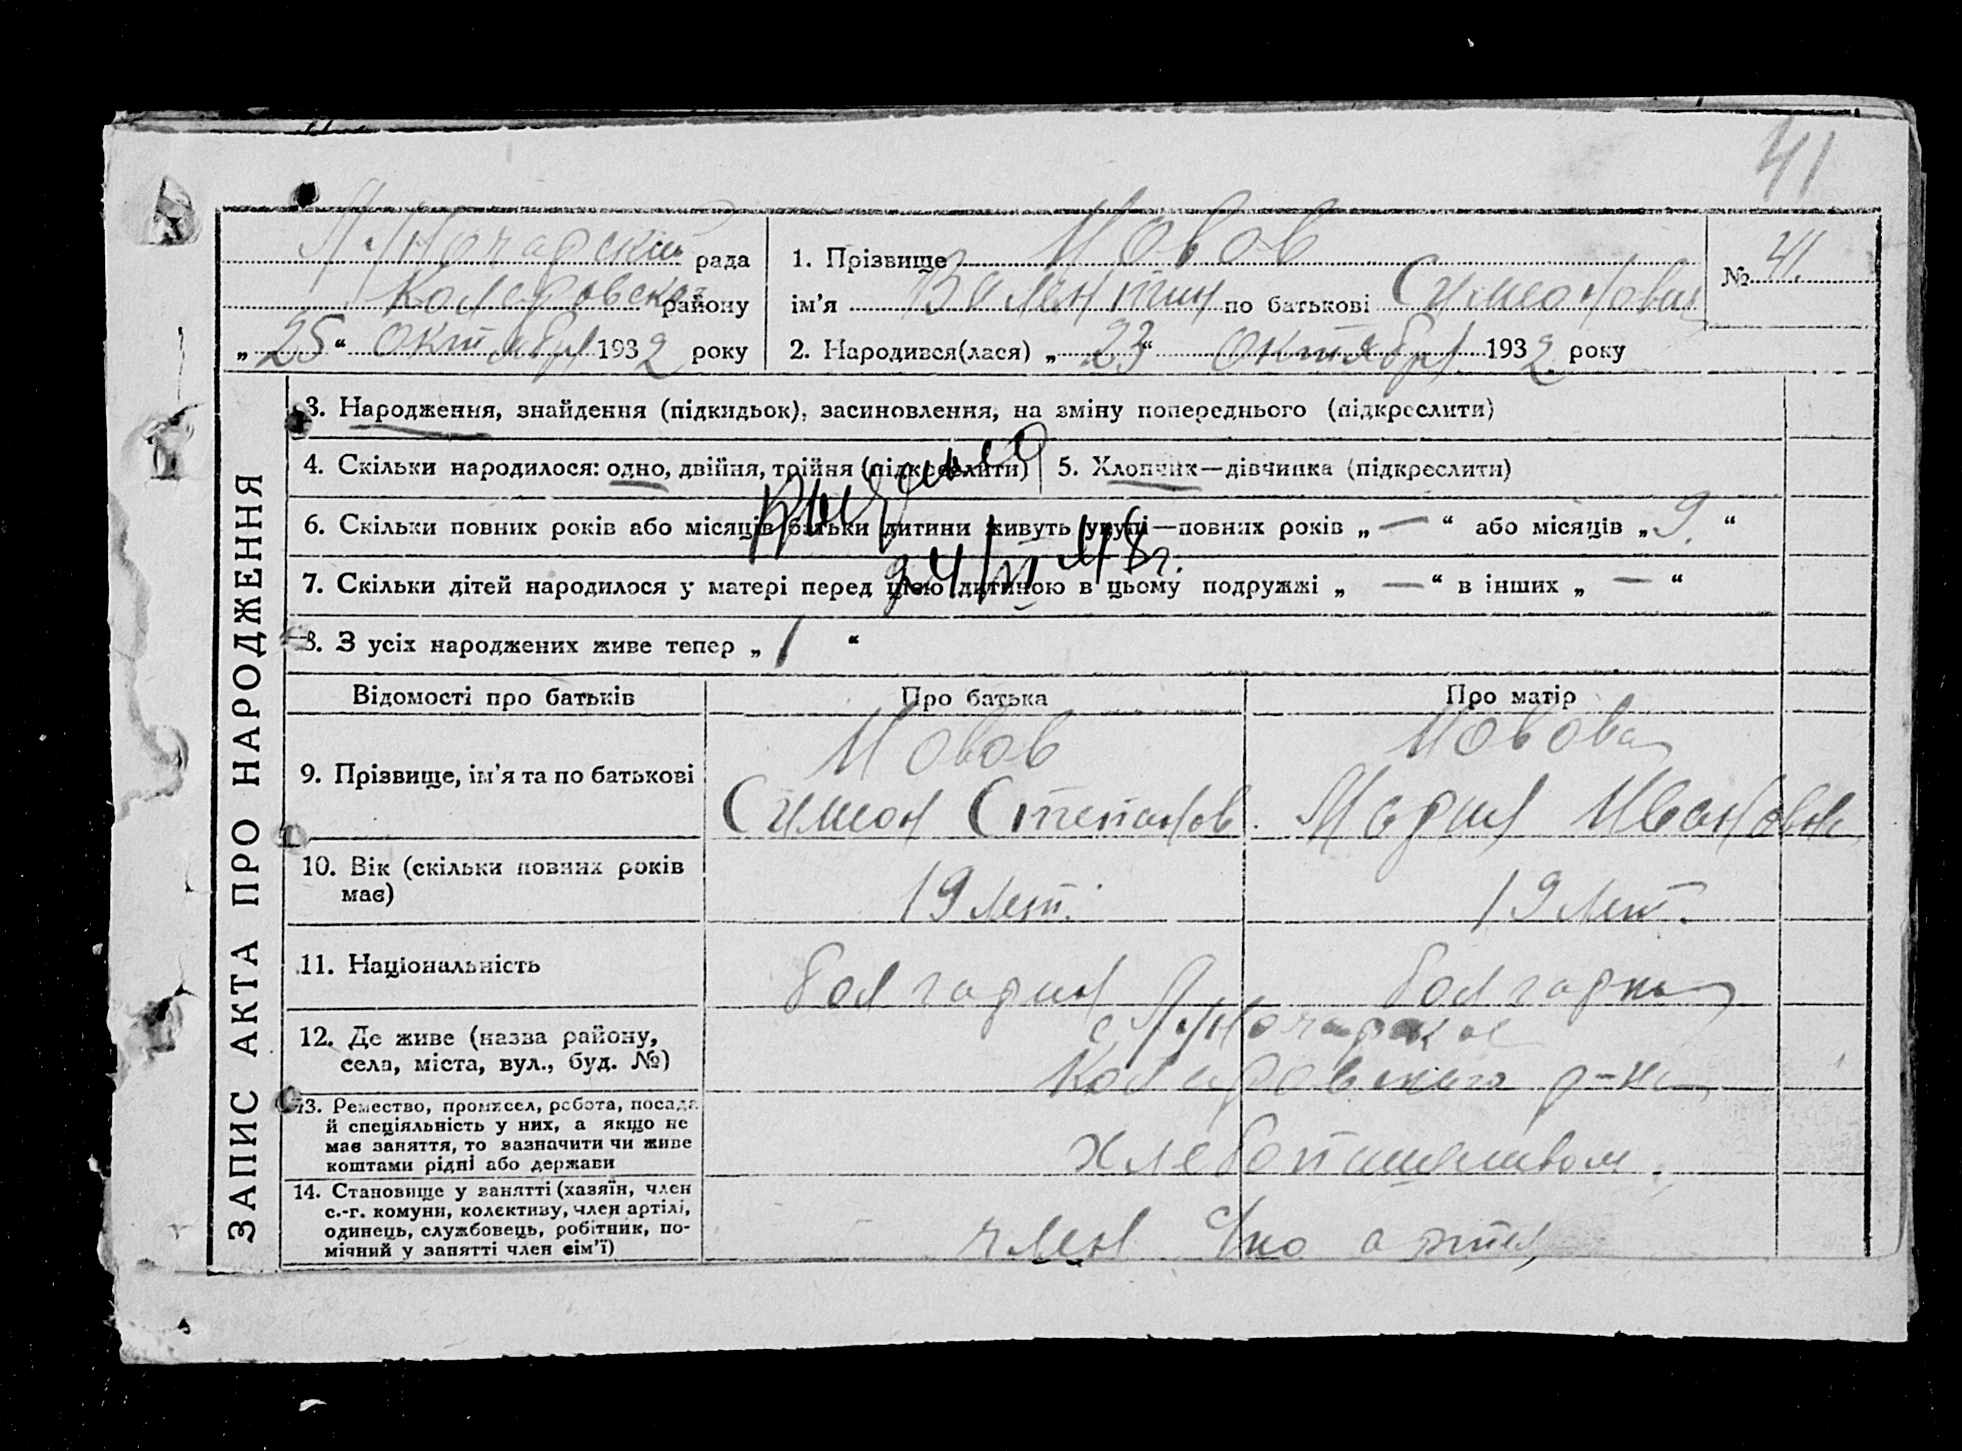 41
Луночарский рада
Коларовского району
„ 25 “ октября 1932 року
1. Прізвище Йовов
ім'я Валентин по батькові Симеонович
2. Народився(лася) „ 23 “ октября 1932 року
№ 41.
ЗАПИС АКТА ПРО НАРОДЖЕННЯ
3. Народження, знайдення (підкидьок), засиновлення, на зміну попереднього (підкреслити)
4. Скільки народилося: одно, двійня, трійня (підкреслити) 5. Хлопчик—дівчинка (підкреслити)
6. Скільки повних років або місяців батьки дитини живуть укупі—повних років „ — “ або місяців „ 9. “
7. Скільки дітей народилося у матері перед цією дитиною в цьому подружжі „ — “ в інших „ — “
24/VI 48г.
8. З усіх народжених живе тепер „ 1 “
Відомості про батьків Про батька Про матір
9. Прізвище, ім'я та по батькові
Йовов
Симеон Степанов.
Йовова
Мария Ивановн
10. Вік (скільки повних років
має)
19 лет.
19 лет.
11. Національність
болгарин
болгарка
12. Де живе (назва району,
села, міста, вул., буд. №)
с Луночарское
Коларовского р-на
13. Ремество, промисел, робота, посада
й спеціяльність у них, а якщо не
має заняття, то зазначити чи живе
коштами рідні або держави
хлебопашеством.
14. Становище у занятті (хазяїн, член
с.-г. комуни, колективу, член артілі,
одинець, службовець, робітник, по-
мічний у занятті член сім'ї)
член с/хо артел